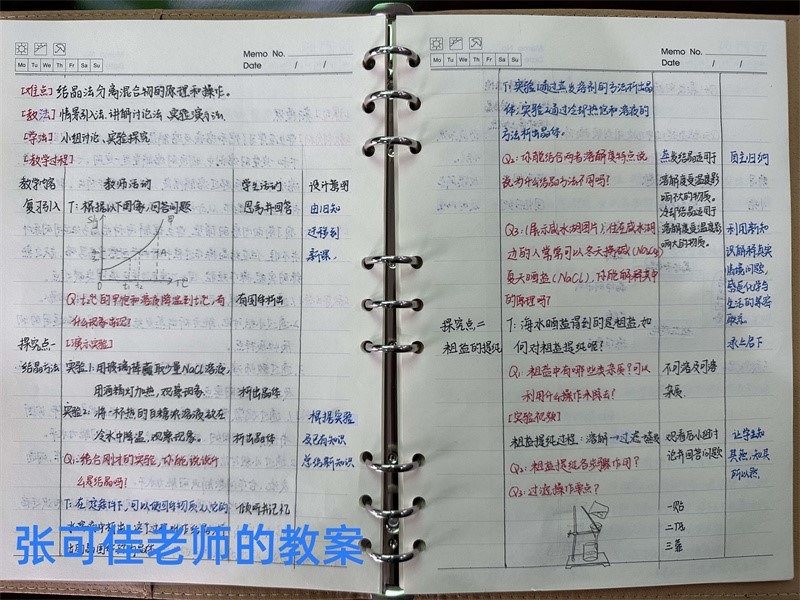 Memo No.
Mo Tu We Th Fr Sa Su
Date / /
[难点] 结晶法分离混合物的原理和操作。
[教法] 情景引入法、讲解讨论法、实验演示法.
[学法] 小组讨论、实验探究
[教学过程]
教学内容 教师活动 学生活动 设计意图
复习引入 T: 根据以下图像,回答问题 思考并回答 由旧知
迁移到
新课.
S/g
甲
A
0 t₁ t₂ T/℃
Q: t₂℃的甲饱和溶液降温到t₁℃,有 有固体析出
什么现象发生?
探究点一 [演示实验]
结晶方法 实验1: 用玻璃棒蘸取少量NaCl溶液,
用酒精灯加热,观察现象. 析出晶体
实验2: 将一杯热的白糖浓溶液放在 根据实验
冷水中降温,观察现象。 析出晶体 及已有知识
Q₁: 结合刚才的实验,你能说说什 总结新知识
么是结晶吗?
T: 在一定条件下,可以使固体物质从它的 倾听书记忆
张可佳老师的教案
Memo No.
Mo Tu We Th Fr Sa Su
Date / /
T: 实验1通过蒸发溶剂的方法析出晶
体;实验2通过冷却热饱和溶液的
方法析出晶体。
Q₂: 你能结合两者溶解度特点说 蒸发结晶适用于 自主归纳
说为什么结晶方法不同吗? 溶解度受温度影
响不大的物质。
冷却结晶适用于
Q₃: (展示咸水湖图片), 住在咸水湖 溶解度受温度影 利用新知
边的人常常可以冬天捞碱(Na₂CO₃) 响大的物质。 识解释真实
夏天晒盐(NaCl),你能解释其中 情境问题,
的原理吗? 感受化学与
生活的紧密
联系。
探究点二 T: 海水晒盐得到的是粗盐,如 承上启下
粗盐的提纯 何对粗盐提纯呢?
Q₁: 粗盐中有哪些类杂质?可以 不可溶及可溶
利用什么操作来除去? 杂质.
[实验视频]
粗盐提纯过程: 溶解→过滤→蒸发 观看后小组讨 让学生知
Q₂: 粗盐提纯各步骤作用? 论并回答问题 其然,知其
Q₃: 过滤操作要点? 所以然.
一贴
二低
三靠